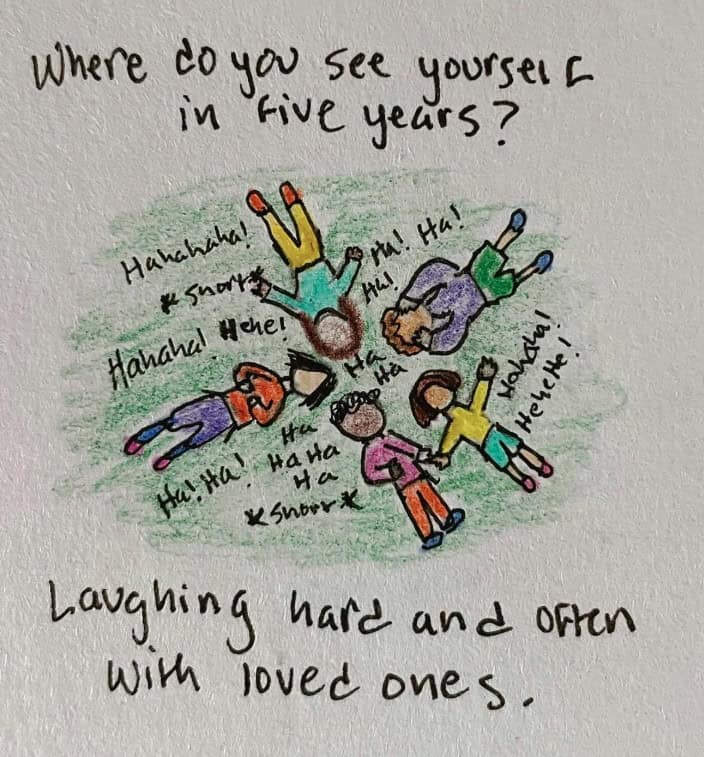 Where do you see yourself
in five years?
Hahahaha!
*snort*
Hahaha! Hehe!
Ha! Ha!
Ha!
Ha
Ha
Hahaha!
HeheHe!
Ha! Ha!
Ha
Ha Ha
Ha
*snort*
Laughing hard and often
with loved ones.